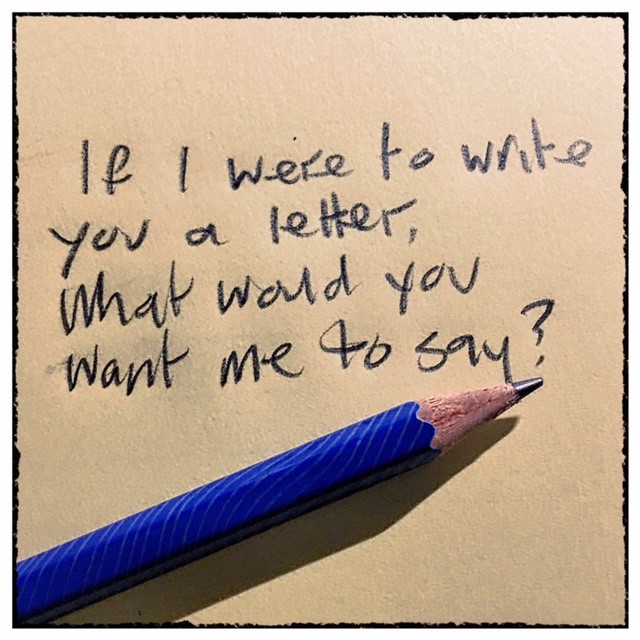 If I were to write
you a letter,
What would you
want me to say?